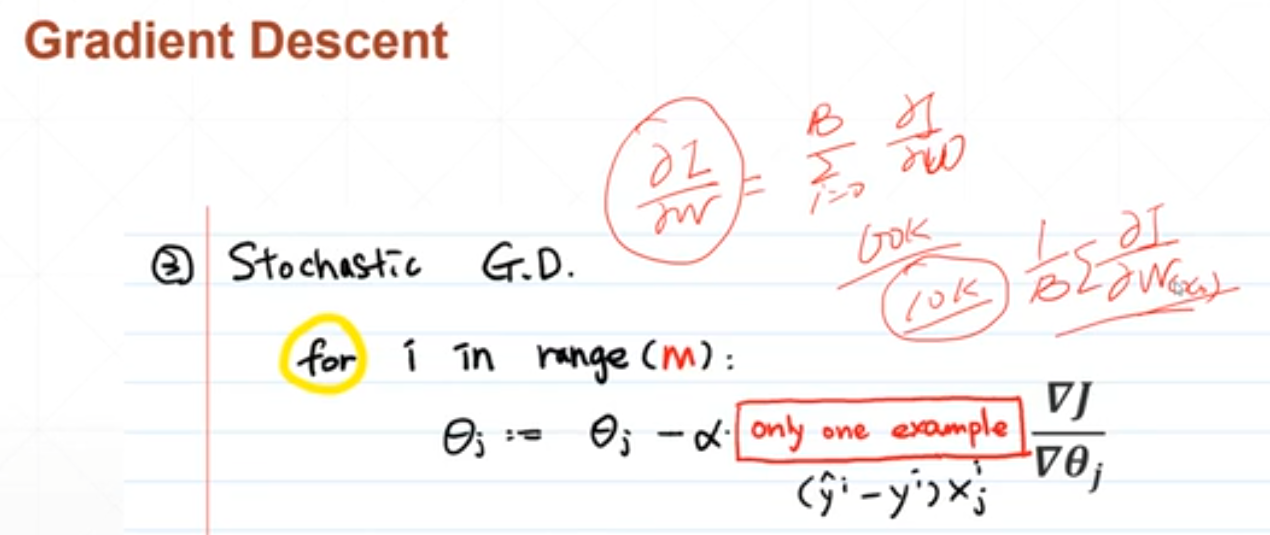 Gradient Descent
∂I/∂W = B Σ i=0 ∂I/∂W
60K/10K 1/B Σ ∂I/∂W
③ Stochastic G.D.
for i in range (m):
θj := θj - α· only one example ∇J/∇θj
(ŷ^i - y^i) x^i_j